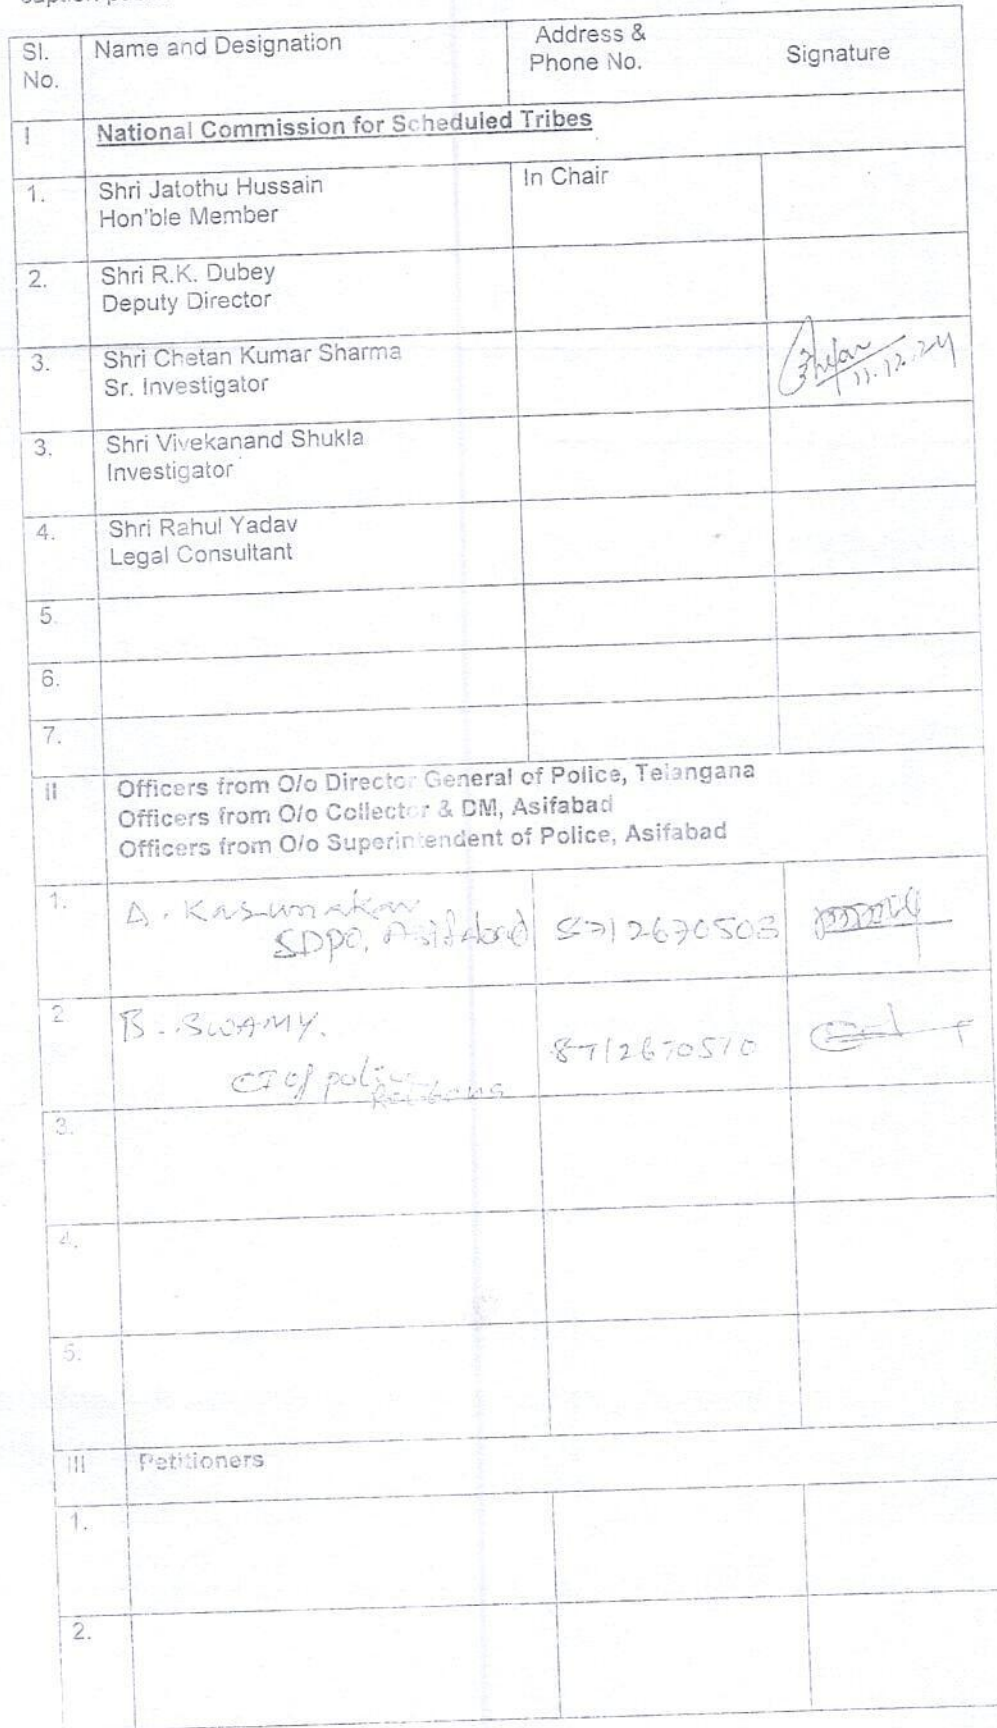 Sl.
No.
Name and Designation
Address &
Phone No.
Signature
I
National Commission for Scheduled Tribes
1.
Shri Jatothu Hussain
Hon'ble Member
In Chair
2.
Shri R.K. Dubey
Deputy Director
3.
Shri Chetan Kumar Sharma
Sr. Investigator
11.12.24
3.
Shri Vivekanand Shukla
Investigator
4.
Shri Rahul Yadav
Legal Consultant
5.
6.
7.
II
Officers from O/o Director General of Police, Telangana
Officers from O/o Collector & DM, Asifabad
Officers from O/o Superintendent of Police, Asifabad
1.
A. Karunakar
SDPO, Asifabad
8712670503
2
B. SWAMY.
CI of police
8712670510
3.
4.
5.
III
Petitioners
1.
2.